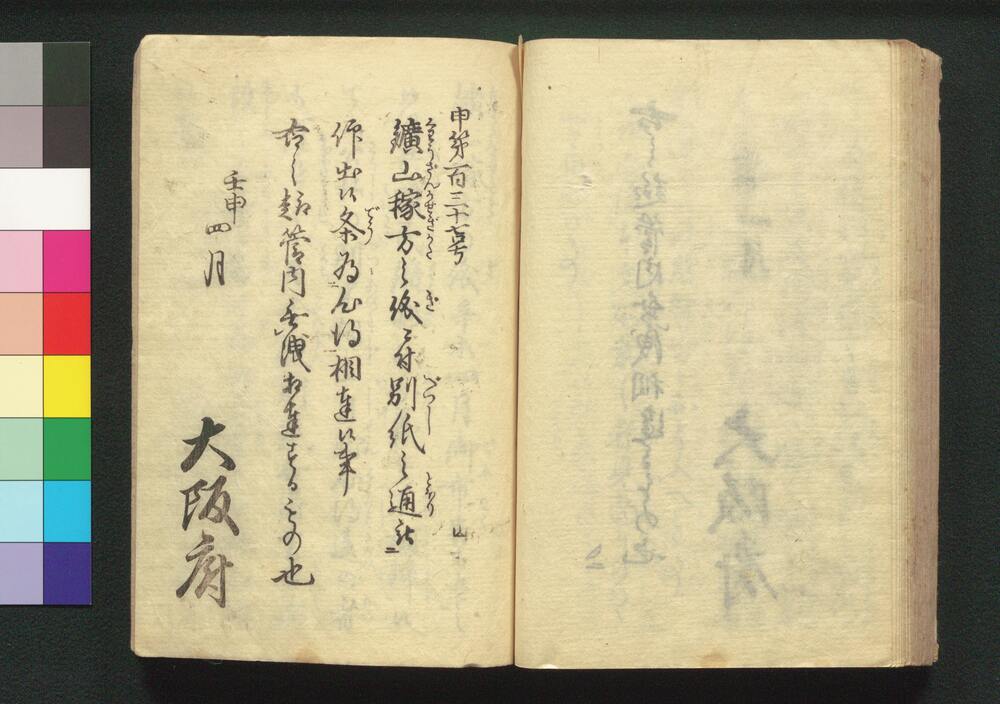 申第百三十七号
鑛山稼方之儀ニ付別紙之通被
仰出候条為心得相達候事
右之趣管内無洩相達するもの也
壬申四月
大阪府